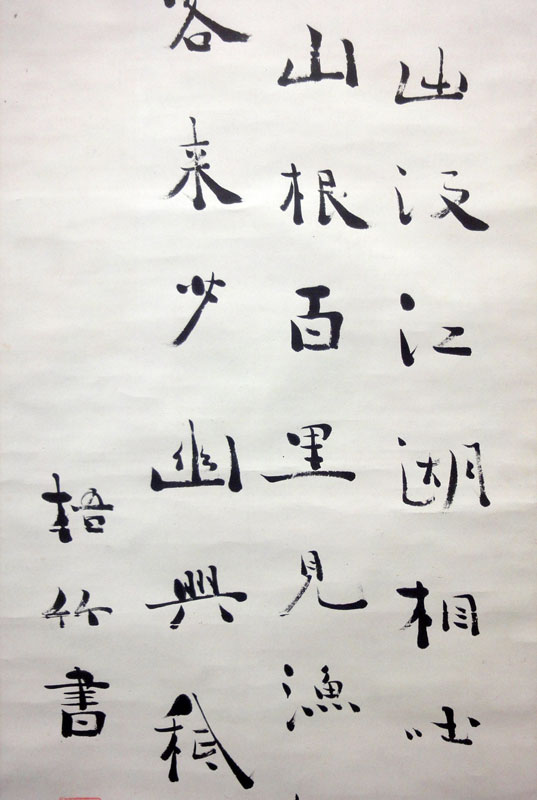 出没江湖相吐
山根百里見漁
客来少幽興
梧竹書